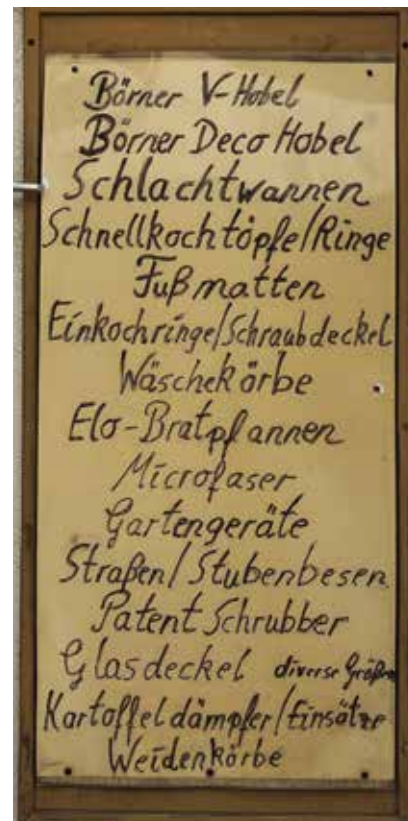 Börner V-Hobel
Börner Deco Hobel
Schlachtwannen
Schnellkochtöpfe/Ringe
Fußmatten
Einkochringe/Schraubdeckel
Wäschekörbe
Elo-Bratpfannen
Microfaser
Gartengeräte
Straßen/Stubenbesen
Patent Schrubber
Glasdeckel diverse Größen
Kartoffeldämpfer/Einsätze
Weidenkörbe